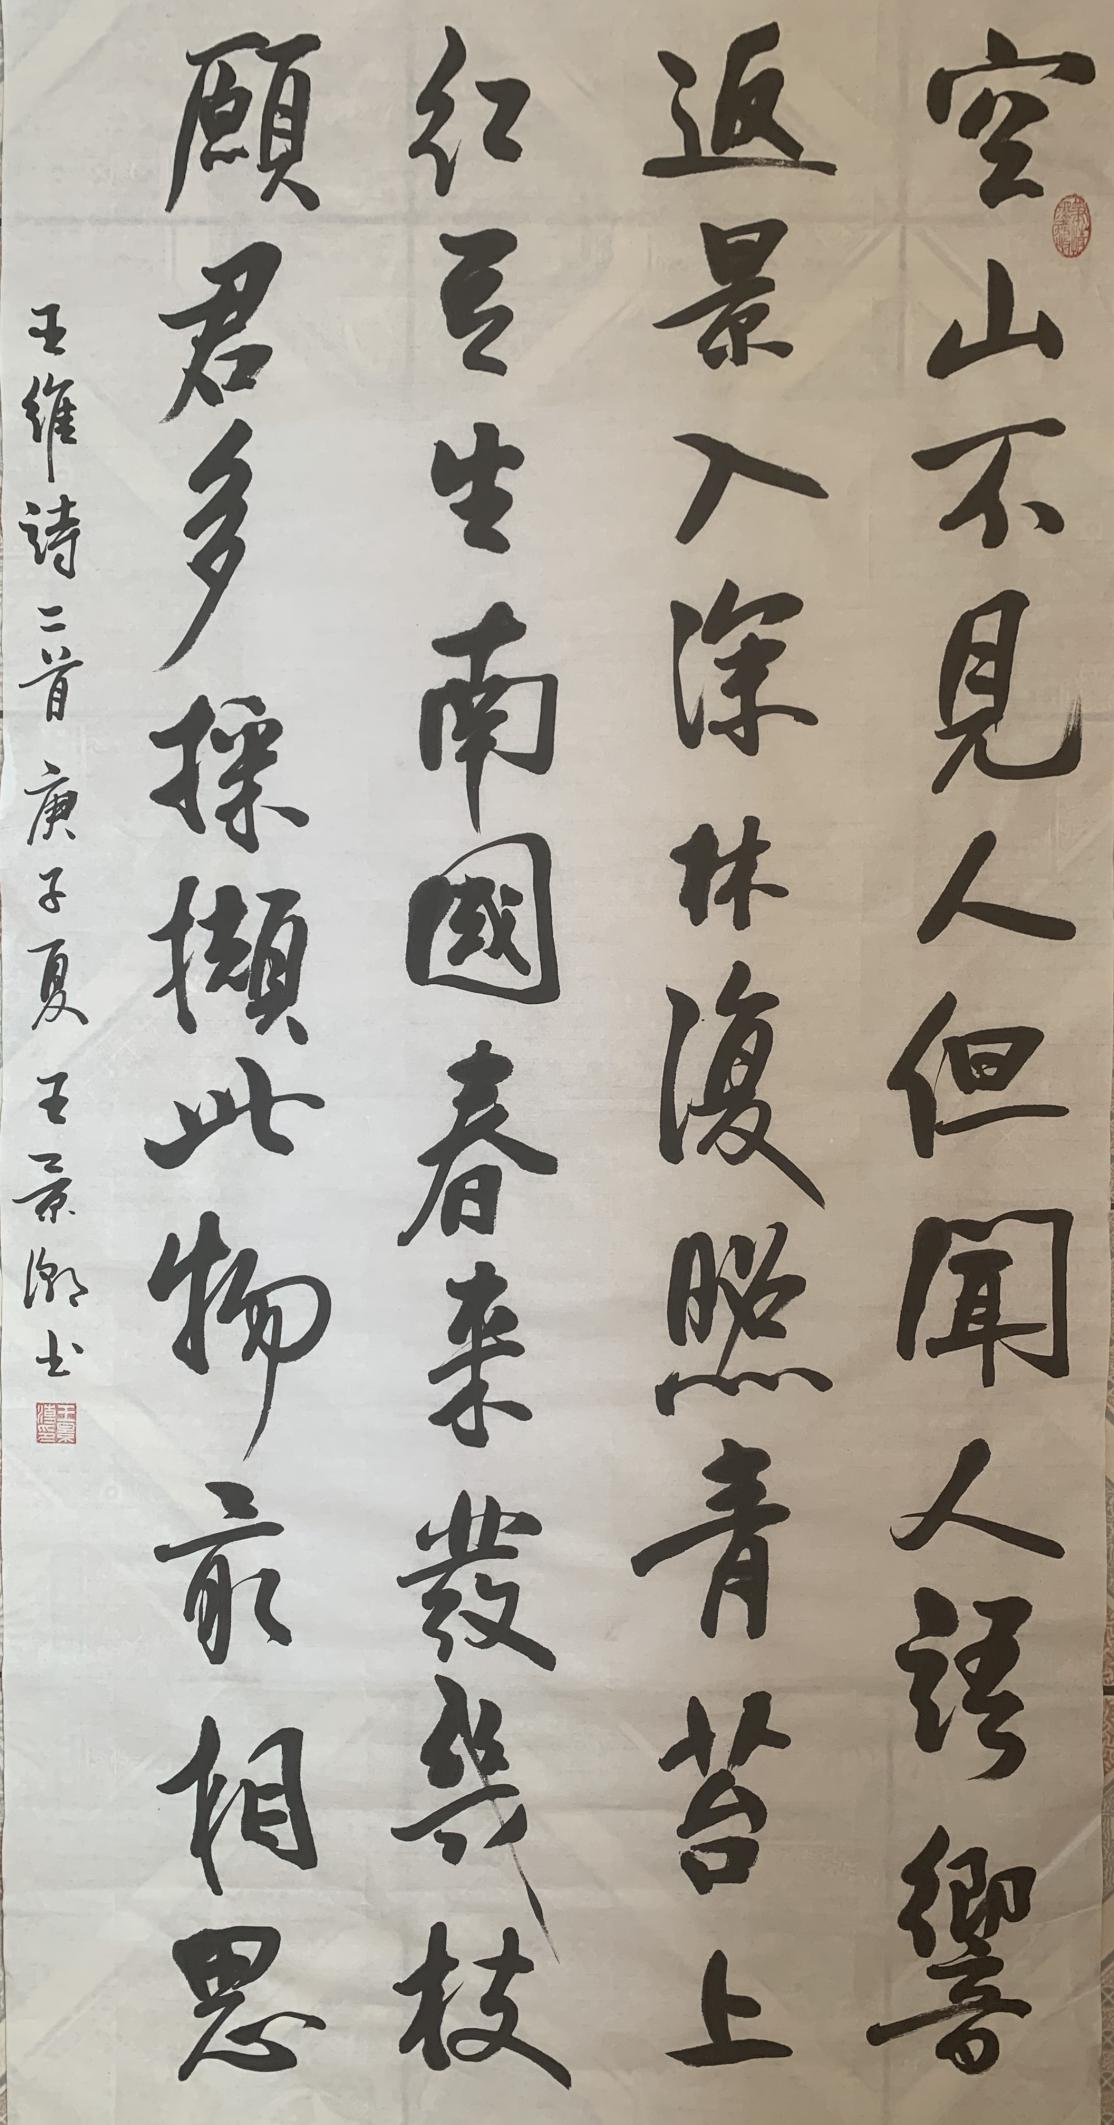 空山不見人但聞人語響
返景入深林復照青苔上
紅豆生南國春來發幾枝
願君多採擷此物最相思
王維詩二首庚子夏王景瀚书